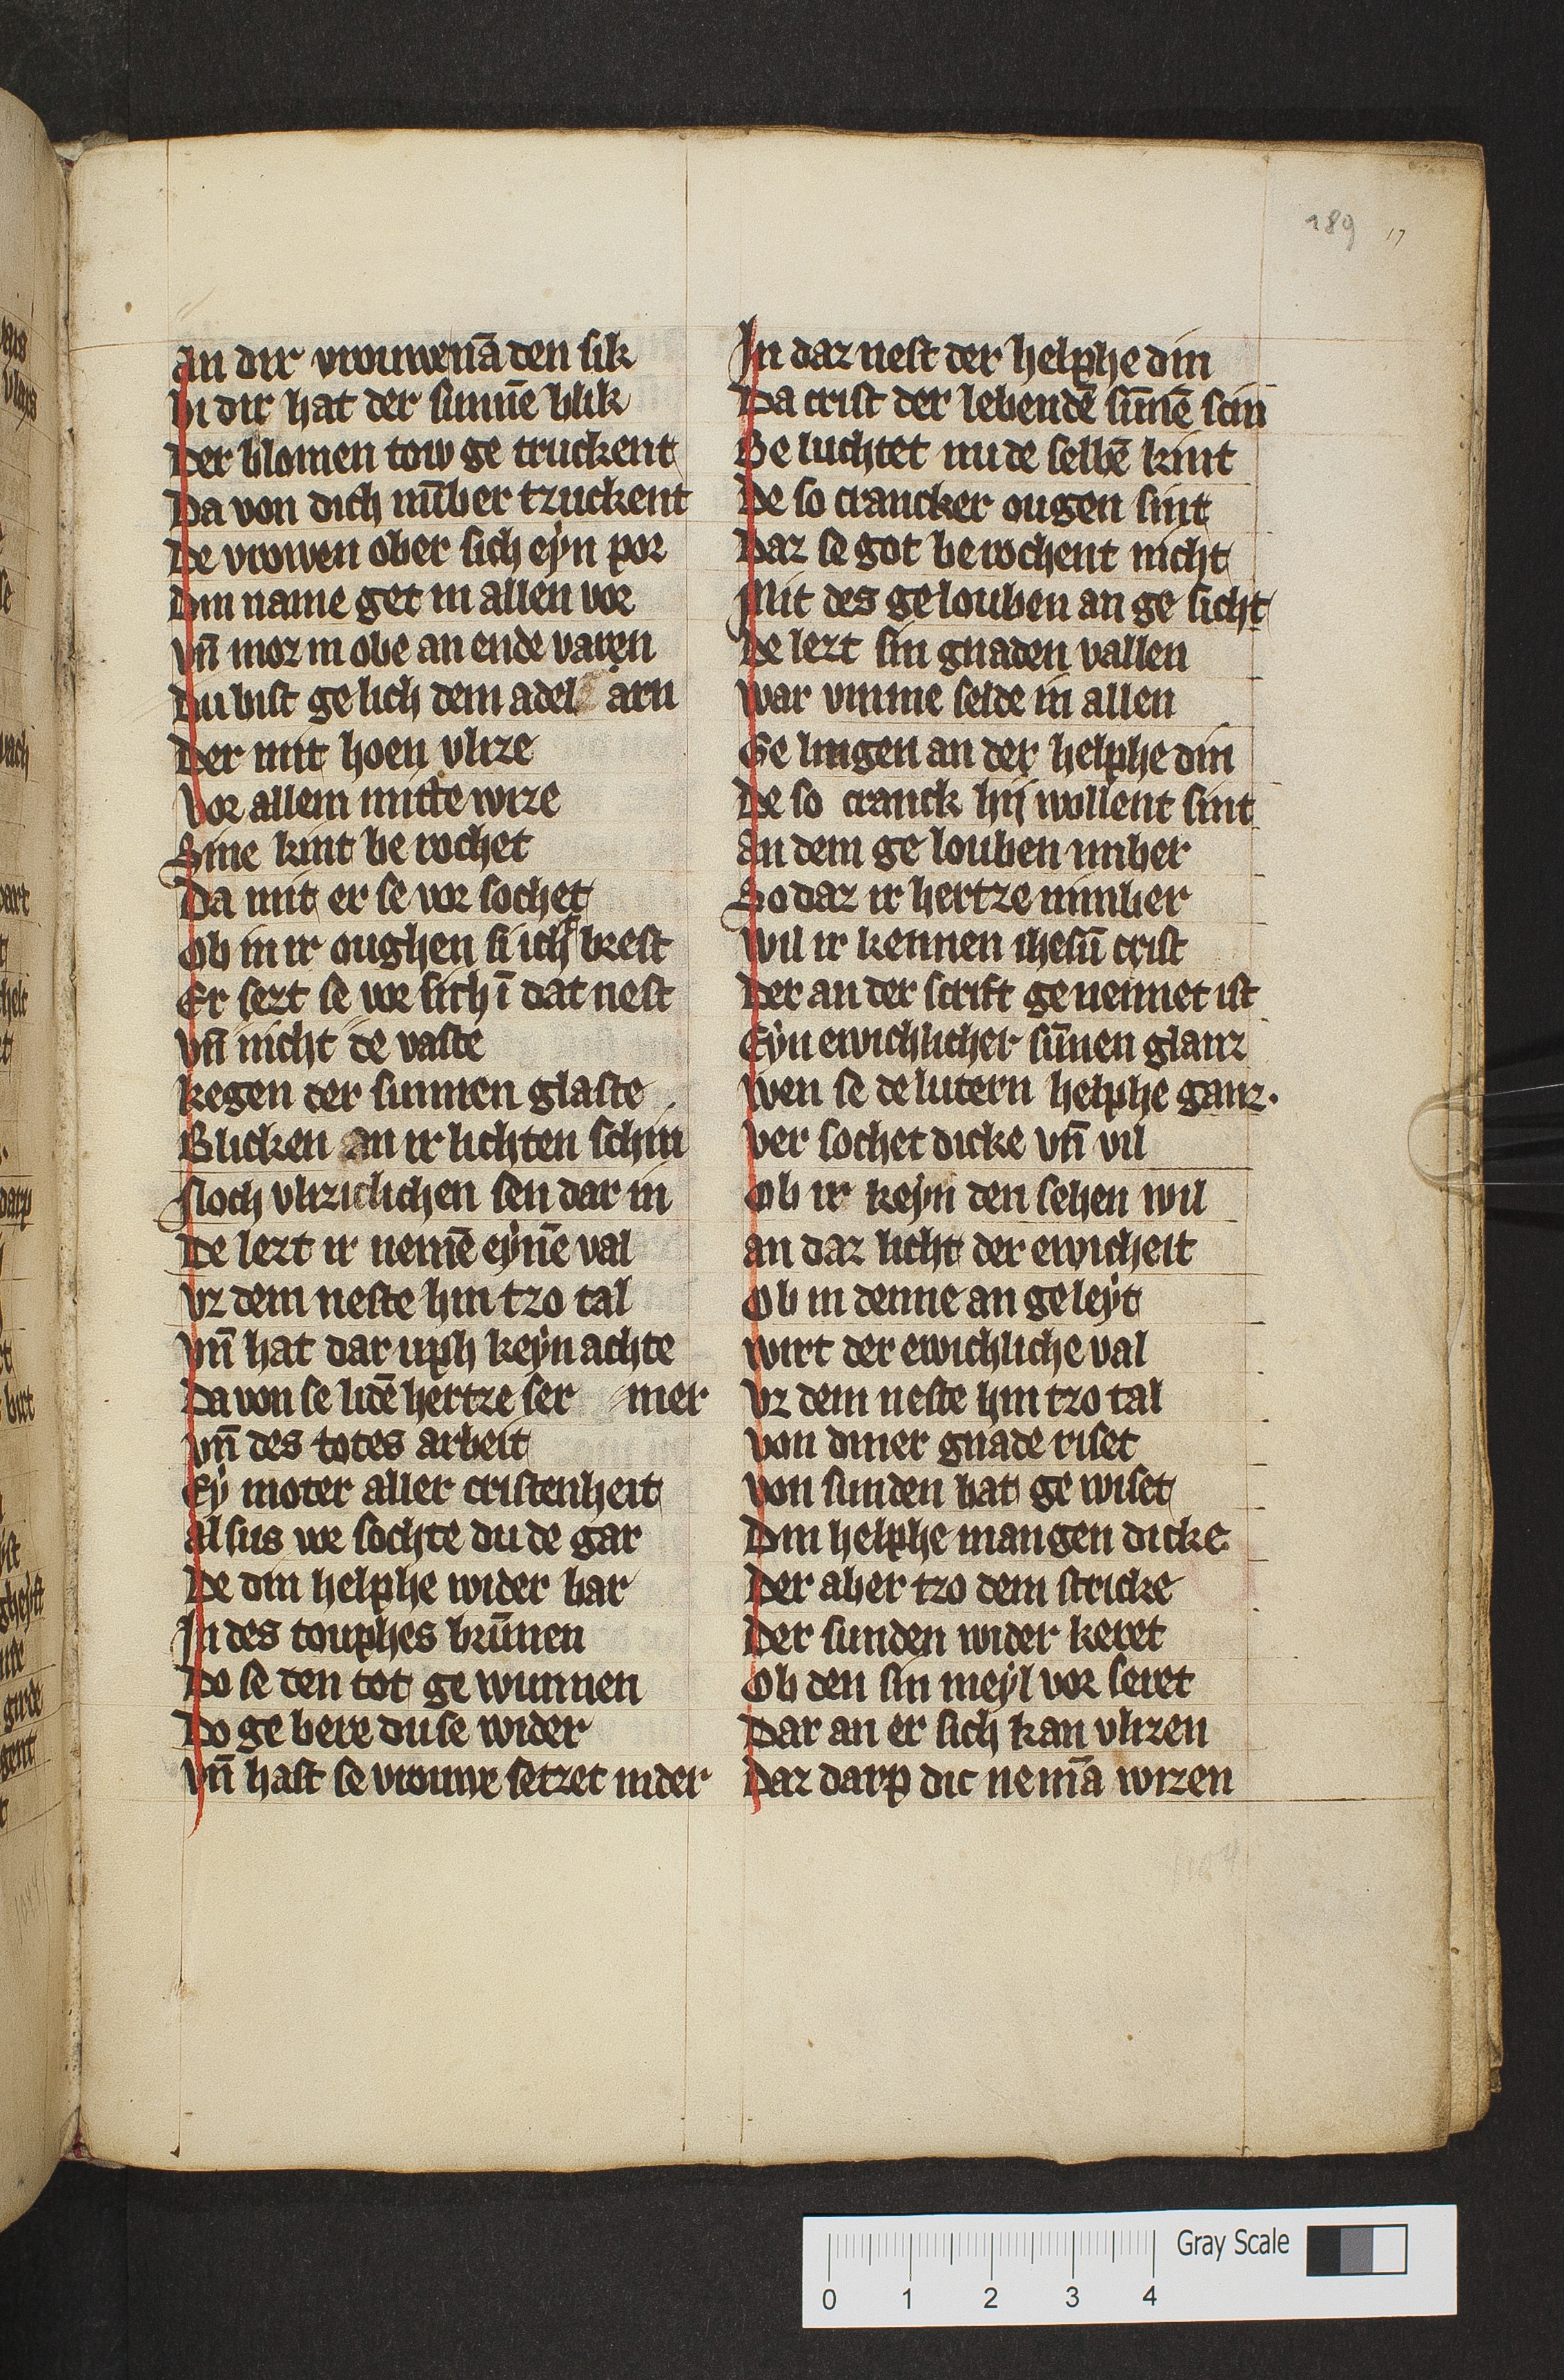 189 17
An dir vrouwen nā den sik
bi dir hat der sunnē blik
Der blomen tow ge truckent
Da von dich nūber tzuckent
De vrowen ober sich eyn por
Din name get in allen vor
vn̄ moz in obe an ende varen
Du bist ge lich dem adel arn
Der mit hoen vlize
vor allem mitte wize
Sine kint be rochet
Da mit er se vor sochet
Ob in ir oughen si icht brest
Er sezt se vor sich ī dat nest
vn̄ nicht de vaste
kegen der sunnen glaste
Blicken an ir lichten schin
Noch vlizichlichen sen dar in
De lezt ir nemē eynē val
vz dem neste hin tzo tal
vnn̄ hat dar uph keyn achte
Da von se lidē hertze ser mer
vnn̄ des totes arbeit
Ey moter aller cristenheit
Alsus vor sochte du de gar
De din helphe wider bar
In des touphes brūnen
Do se den tot ge wunnen
Do ge bere du se wider
vn̄ hast se vrouwe setzet nider
In daz nest der helphe din
Da crist der lebendē sūnē scin
Be luchtet nu de selbē kint
De so crancker ougen sint
Daz se got be rochent nicht
Mit des ge louben an ge sicht
De lezt sin gnaden vallen
war vmme selde in allen
Ge lingen an der helphe din
De so cranck hij wollent sint
an dem ge louben imber
So daz ir hertze nimber
wil ir kennen ihesū crist
Der an der scrift genennet ist
Eyn ewichlicher sūnen glanz
wen se de lutern helphe ganz.
ver sochet dicke vn̄ vil
Ob ir keyn den sehen wil
an daz licht der ewicheit
Ob in denne an geleyt
wirt der ewichliche val
vz dem neste hin tzo tal
von diner gnade riset
von sunden hat ge wiset
Din helphe mangen dicke
Der aber tzo dem stricke
Der sunden wider keret
Ob den sin meyl vor seret
Dar an er sich kan vlizen
Daz darp dic nemā wizen
Gray Scale
0 1 2 3 4